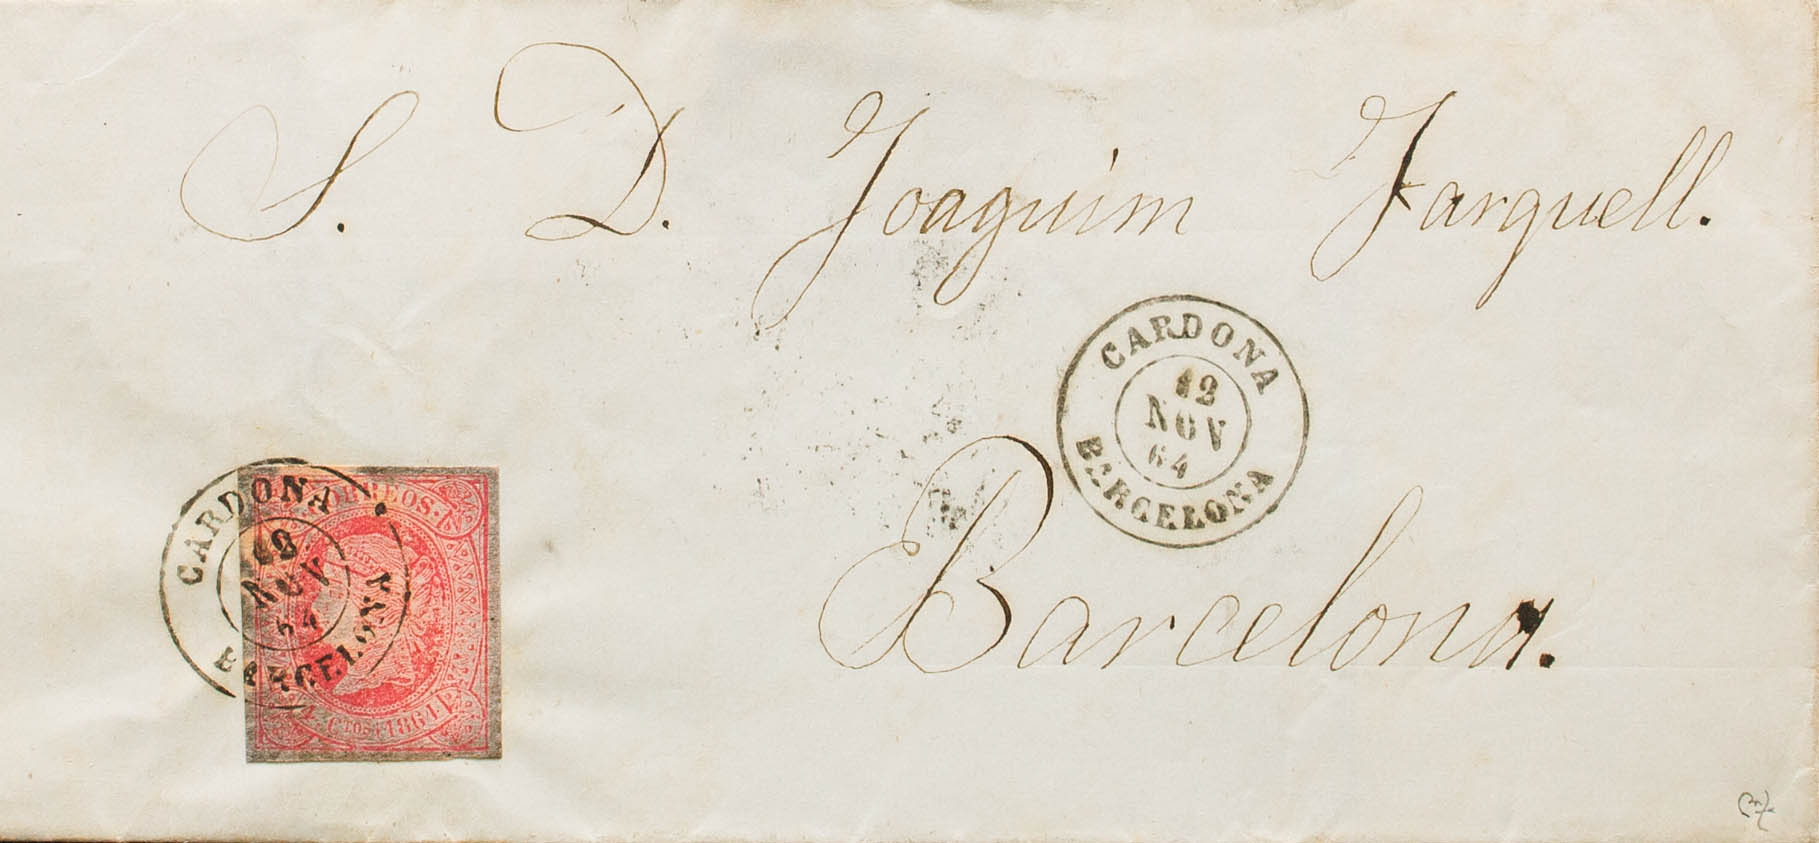 S. D. Joaquim Farguell.
CARDONA
12
NOV
64
BARCELONA
Barcelona.
CARDONA
NOV
64
BARCELONA
CORREOS.
4 CTOS 1864